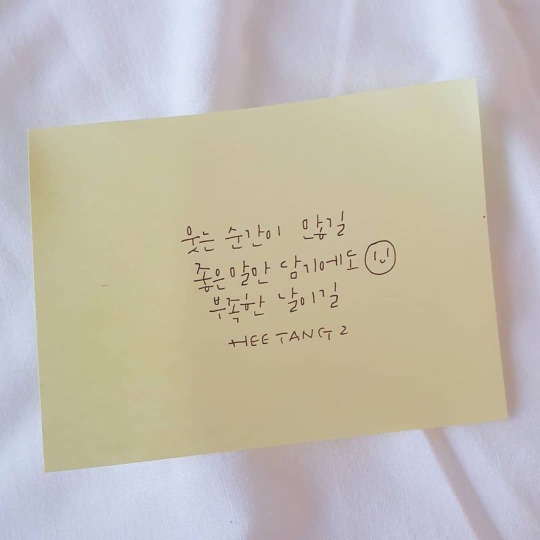 웃는 순간이 많길
좋은말만 담기에도
부족한 날이길
HEE TANG 2